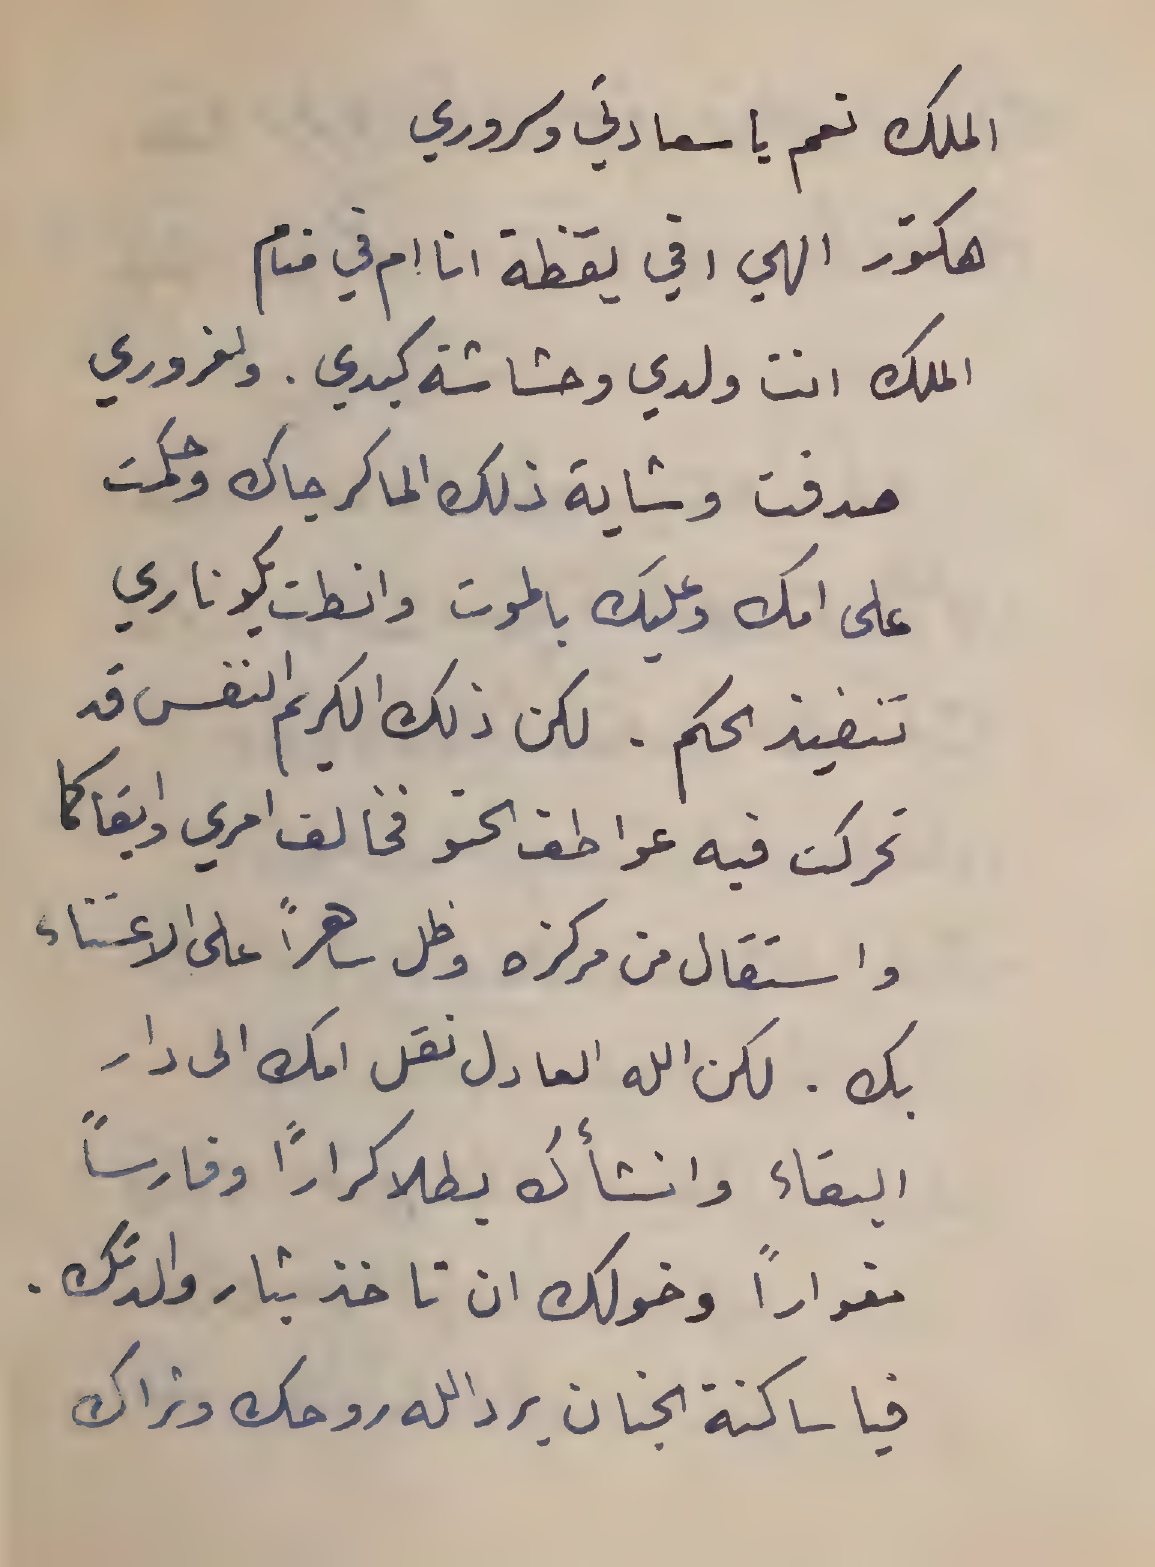 الملك نعم يا سعادتي وسروري
هكتور الهي افي يقظة انا ام في منام
الملك انت ولدي وحشاشة كبدي . ولغروري
صدقت وشاية ذلك الماكر جاك وحكمت
على امك وعليك بالموت وانطت بكوناري
تنفيذ الحكم . لكن ذلك الكريم النفس قد
تحركت فيه عواطف الحنو فخالف امري وابقاكما
واستقال من مركزه وظل ساهراً على الاعتناء
بك . لكن الله العادل نقل امك الى دار
البقاء وانشأك بطلا كراراً وفارساً
مغواراً وخولك ان تاخذ بثار والدتك .
فيا ساكنة الجنان برد الله روحك وثراك